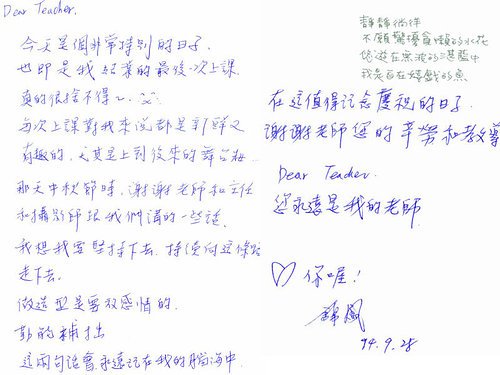 Dear Teacher.
今天是個非常特別的日子.
也即是我結業的最後一次上課.
真的很捨不得~.
每次上課對我來說都是新鮮又
有趣的.尤其是上到後來的舞台妝.
那天中秋節時.謝謝老師和主任
和攝影師跟我們講的一些話.
我想我要堅持下去.持續向這條路
走下去.
做造型是要放感情的.
勤能補拙
這兩句話會永遠記在我的腦海中.
靜靜徜徉
不願驚擾貪懶的水花
悠遊在無波的湛藍中
我是自在嬉戲的魚
在這值得記念慶祝的日子.
謝謝老師您的辛勞和教導
Dear Teacher.
您永遠是我的老師.
♡你喔!
94.9.28